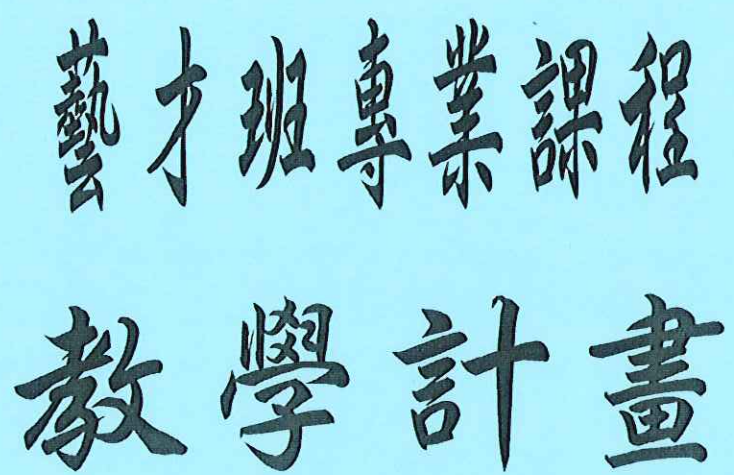 藝才班專業課程
教學計畫